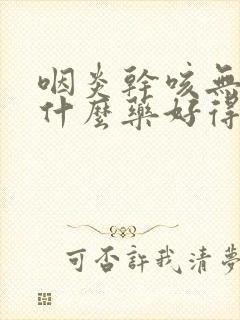 咽炎幹咳無
什麼藥好得
可否許我清夢